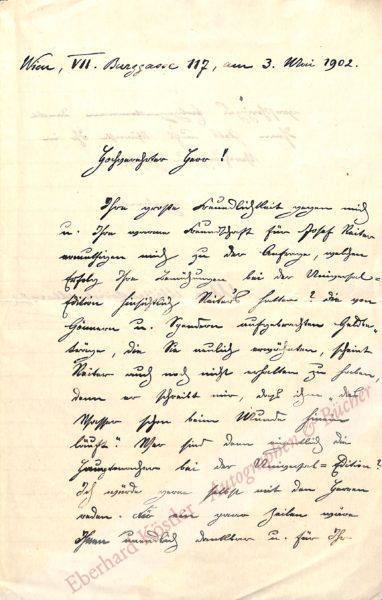 Wien, VII. Burggasse 117, am 3. Mai 1902.
Hochverehrter Herr!
Ihre große Freundlichkeit gegen mich
u. Ihre warme Freundschaft für Josef Reiter
ermuthigen mich zu der Anfrage, welchen
Erfolg Ihre Bemühungen bei der Universal-
Edition hinsichtlich Reiters hatten? die von
Gönnern u. Spendern aufgebrachten Geldbe-
träge, die Sie neulich erwähnten, scheint
Reiter auch noch nicht erhalten zu haben,
denn er schreibt mir, daß ihm „das
Wasser schon beim Munde hinein
läuft." Wer sind denn eigentlich die
Hauptmacher bei der Universal-Edition?
Ich würde gerne selbst mit den Herren
reden. Für ein paar Zeilen wäre
Ihnen unendlich dankbar u. für Ihr
Eberhard Köstler Autographen & Bücher